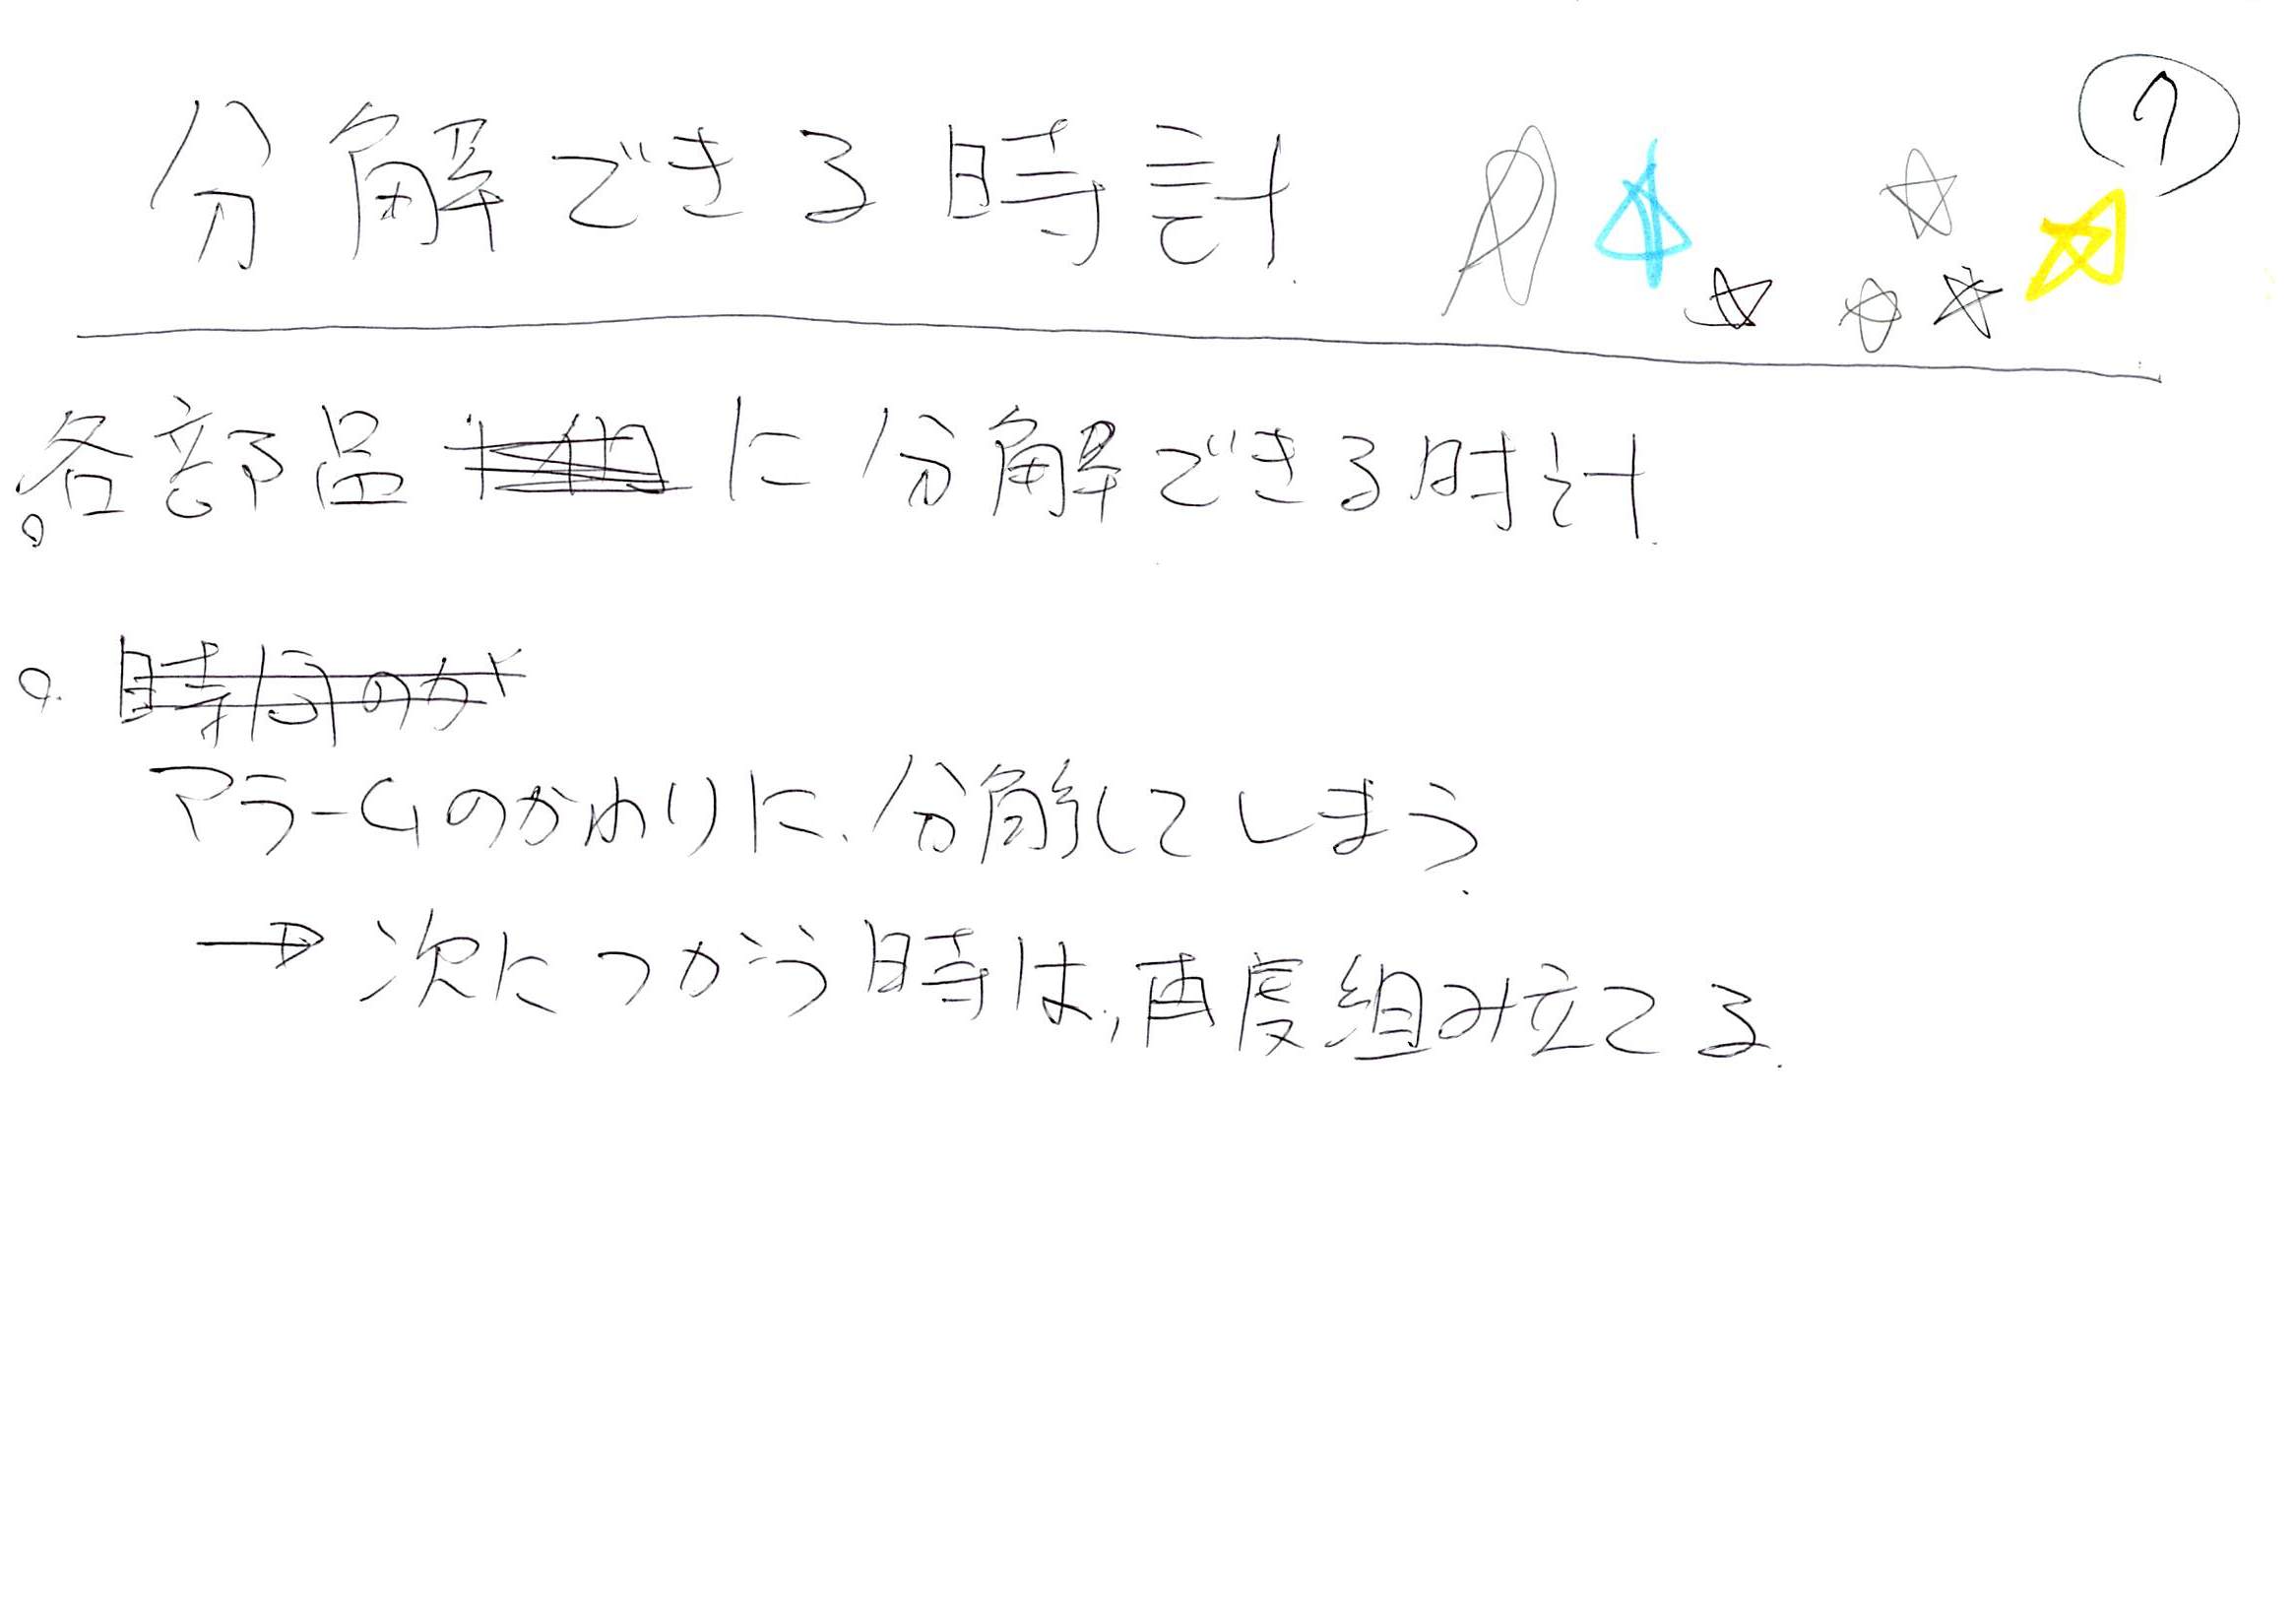 分解できる時計
各部品に分解できる時計
アラームのかわりに、分解してしまう
→ 次につかう時は、再度組み立てる